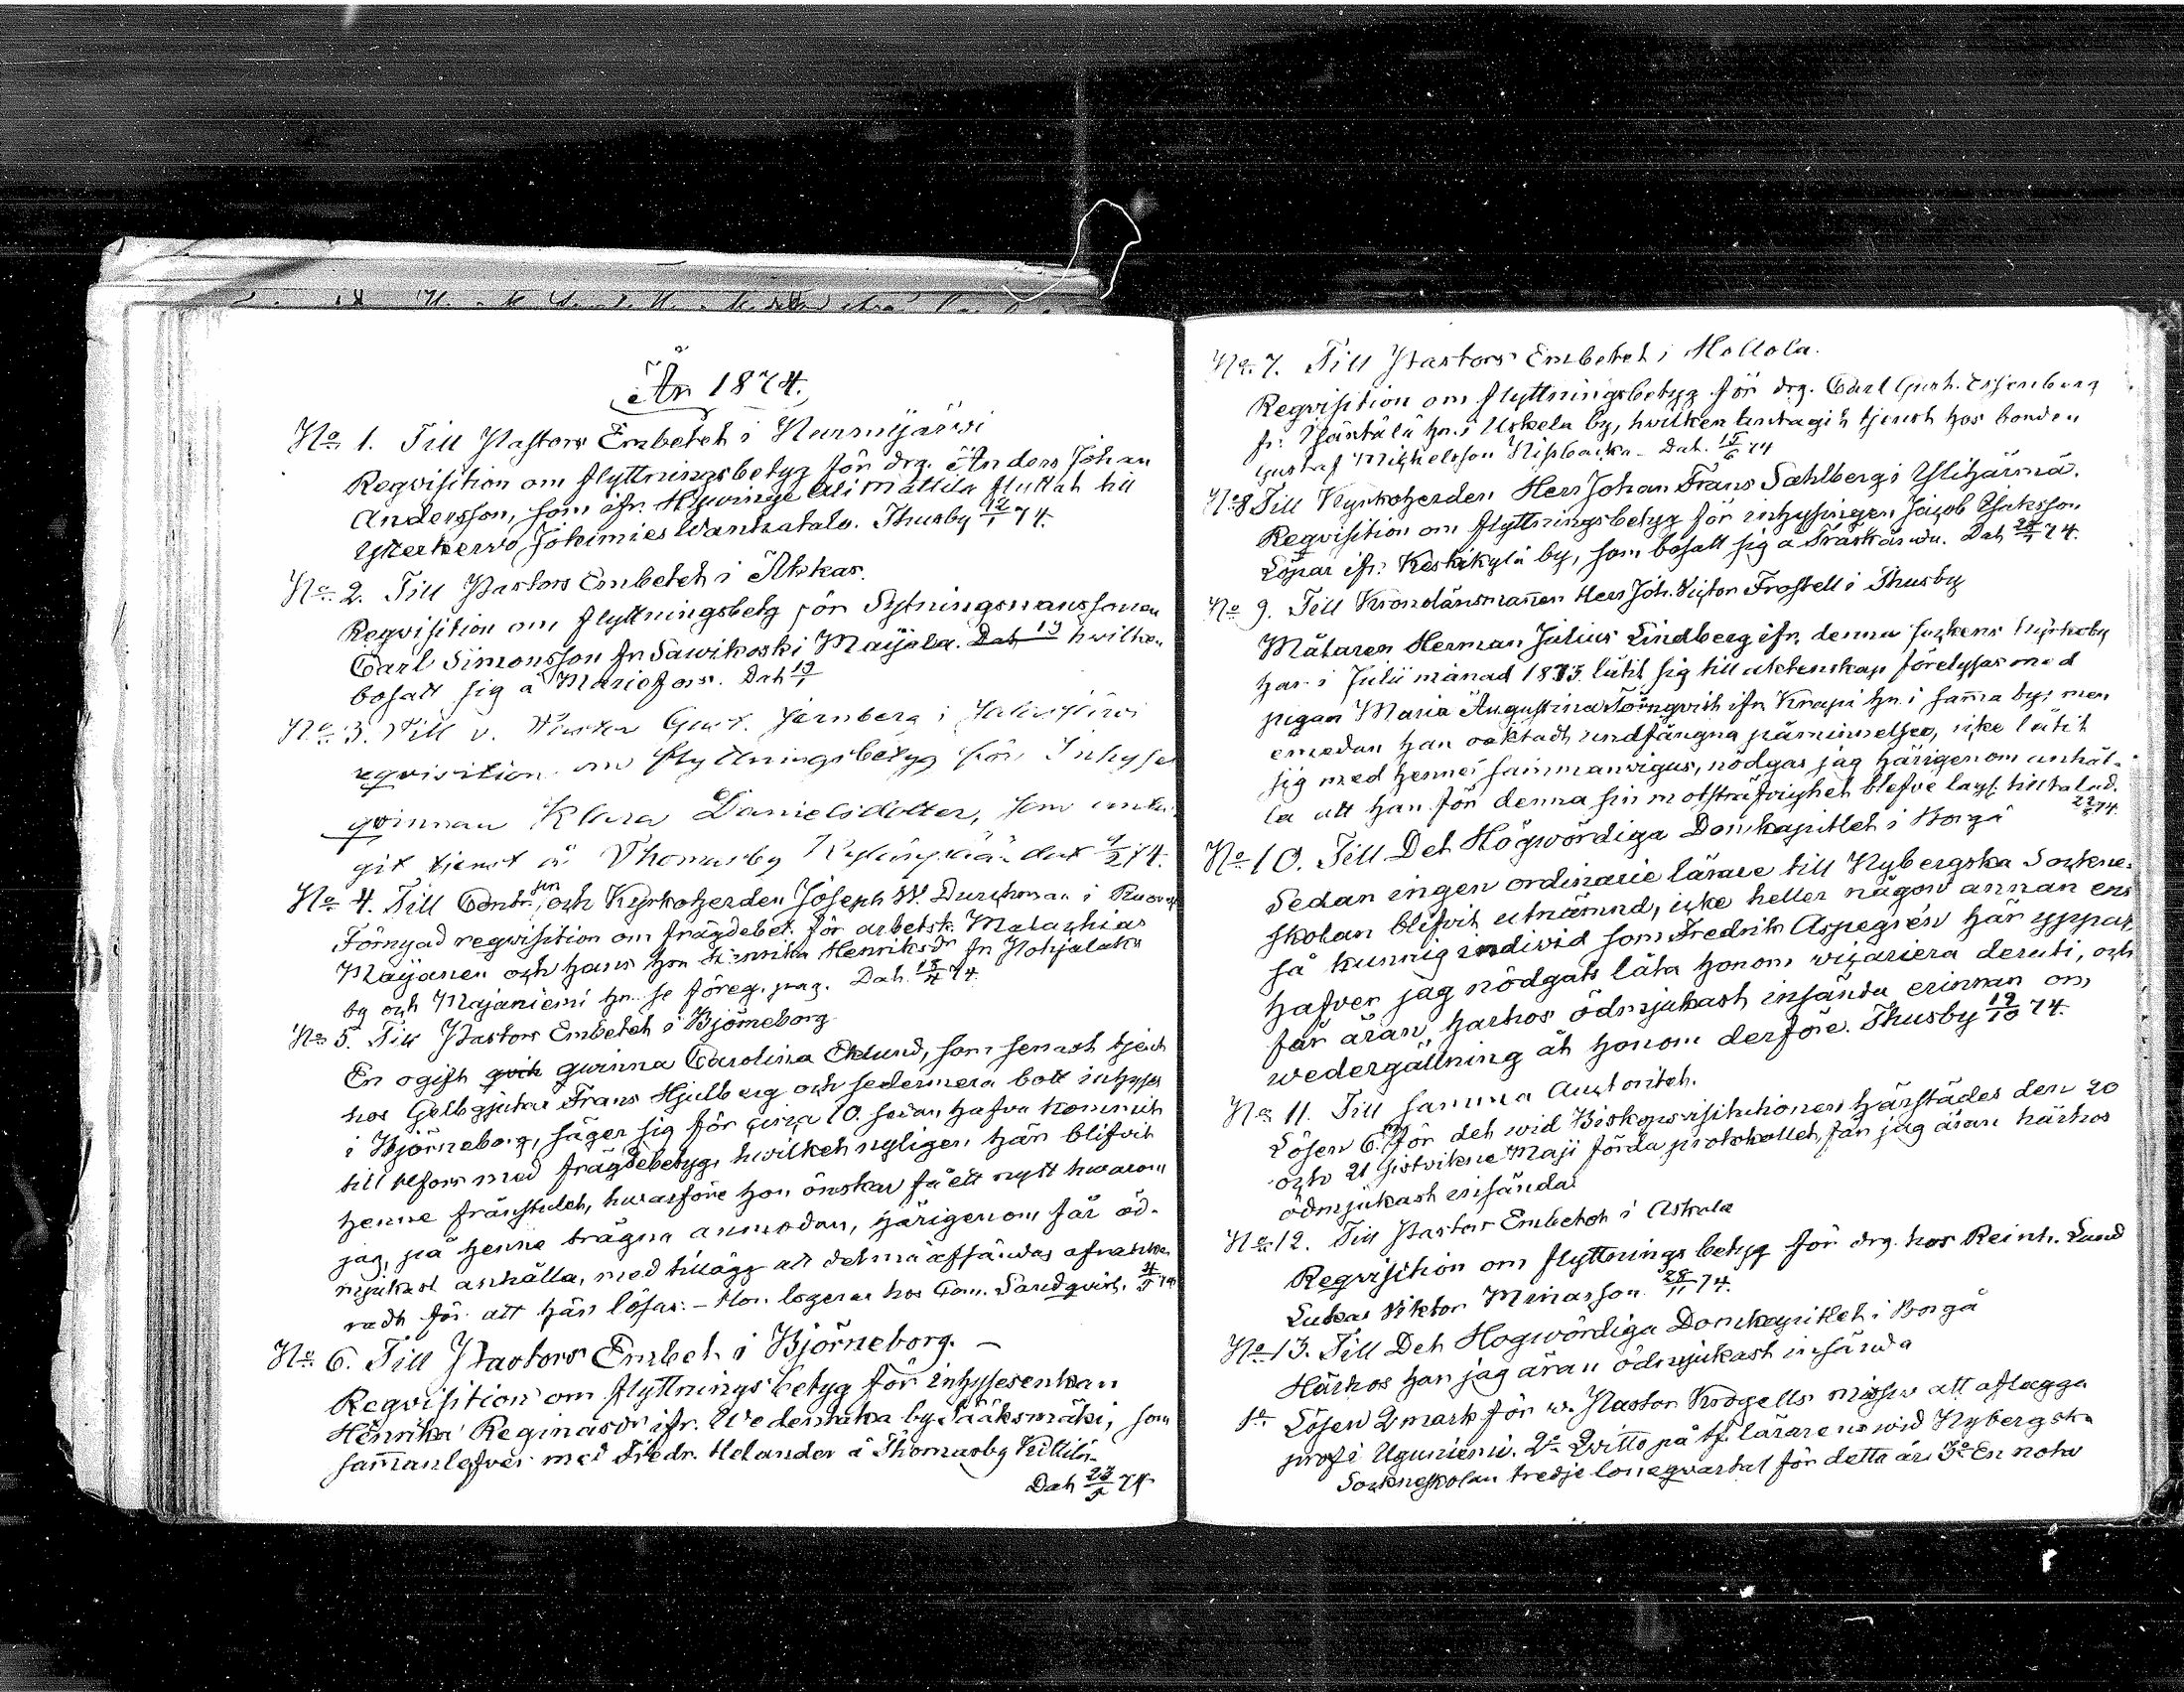 År 1874.
No 1. Till Pastors Embetet i Nurmijärwi
Reqvisition om flyttningsbetyg för drg. Anders Johan
Andersson, som ifr. Hywinge Ali Mattila flyttat till
Ytterkerwo Johimies Wanhatalo. Thusby 12/1 74.
No 2. Till Pastors Embetet i Itis
Reqvisition om flyttningsbetg för Sytningsmanssonen
Carl Simonsson fr Sawikoski Mayala. Dat 19 hwilken
bosatt sig å Mariefors. Dat 19/1
No 3. Till v. Pastor Gust. Jernberg i
reqvisition om flyttningsbetyg för Inhyses
qvinnan Klara Danielsdotter, som anta-
git tjenst å Thomasby Kylänpää dat 9/2 74.
No 4. Till Contr. pn och Kyrkoherden Joseph W. Durchman i Ruoves
Förnyad reqvisition om frägdebet. för arbetsk. Malachias
Mayanen och hans hu Henrika Henriksdr fr Pohjalaks
by och Majaniemi hn. se föreg. pag. Dat. 18/4 74
No 5. Till Pastors Embetet i Björneborg
En ogift qvih qwinna Carolina Eklund, som senast tjent
hos Gelbgjutar Frans Hjulberg och sedermera bott inhyses
i Björneborg, säger sig för circa 10. sedan hafva kommit
till Hfors med frägdebetyg, hwilket nyligen här blifvit
henne frånstulet, hwarföre hon önskar få ett nytt hwarom
jag, på henne trägna anmodan, härigenom får öd-
mjukast anhålla, med tillägg att det må afsändas ofranke-
radt för att här lösas. – Hon logerar hos Gam. Sandqvist. 4/5 74
No 6. Till Pastors Embet. i Björneborg. –
Reqvisition om flyttnings betyg för inhysesenkan
Henrika Reginasdr ifr. Wedentaka by Sääksmäki, som
sammanlefver med Fredr. Helander å Thomasby Kellilä.
Dat 23/5 74
No 7. Till Pastors Embetet i Hollola.
Reqvisition om flyttningsbetyg för drg. Carl Gust.
fr. hn. i Uskela by, hvilken antagit tjenst hos bonden
Gustaf Michelsson Nissbacka. Dat. 15/6 74
No 8 Till Kyrkoherden Herr Johan Frans Sahlberg i Ylihärmä.
Reqvisition om flyttningsbetyg för inhysingen Jacob Isaksson
Löpar ifr. Keskikylä by, som bosatt sig å Träskända. Dat 24.
No 9. Till Kronolänsmannen Herr Joh. Victor Frostell i Thusby
Målaren Herman Julius Lindberg ifr. denna sockens kyrkoby
har i Julii månad 1873. låtit sig till äktenskap förelysas med
pigan Maria Augustina Törnqvist ifr. Krapi hn. i samma by; men
emedan han oaktadt undfångna påminnelser, icke låtit
sig med henne sammanwigas, nödgas jag härigenom anhål-
la att han för denna sin motsträfvighet blefve lagl. tilltalad.
22 74.
No 10. Till Det Högwördiga Domkapitlet i Borgå
Sedan ingen ordinarie lärare till Nybergska Sockne-
skolan blifvit utnämnd, icke heller någon annan ens
så kunnig individ som Fredrik Aspegrén här yppat,
hafver jag nödgats låta honom vicariera deruti, och
får äran härhos ödmjukast insända erinran om
wedergällning åt honom derföre. Thusby 19/10 74.
No 11. Till samma Auctoritet.
Lösen 6. mk för det wid Biskopsvisitationen härstädes den 20
och 21 sistvikne Maji förda protokollet, får jag äran härhos
ödmjukast insända.
No 12. Till Pastors Embetet i Askola
Reqvisition om flyttnings betyg för drg. hos Reinh. Lund
Lukas Viktor Minasson 28/11 74.
No 13. Till Det Högwördiga Domkapitlet i Borgå
Härhos har jag äran ödmjukast insända
1o Lösen 2 mark för w. Pastor Krogells misse att aflägga
prof i Uguniemi. 2o Qvitto på tf. lärarens wid Nybergska
Sockneskolan tredje löneqvartal för detta år. 3o En nota